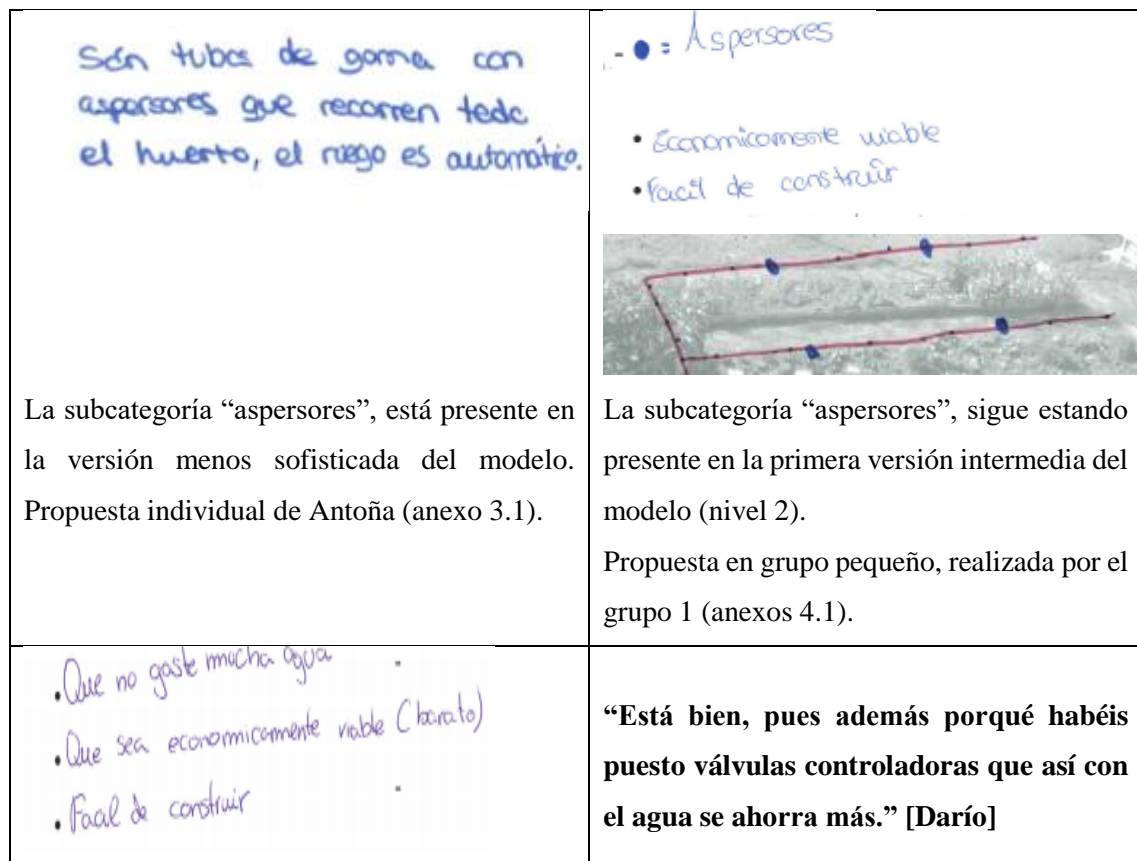 Són tubos de goma con
aspersores que recorren todo
el huerto, el riego es automático.
- ● = Aspersores
• Economicamente viable
• Facil de construir
La subcategoría “aspersores”, está presente en
la versión menos sofisticada del modelo.
Propuesta individual de Antoña (anexo 3.1).
La subcategoría “aspersores”, sigue estando
presente en la primera versión intermedia del
modelo (nivel 2).
Propuesta en grupo pequeño, realizada por el
grupo 1 (anexos 4.1).
• Que no gaste mucha agua
• Que sea economicamente viable (barato)
• Facil de construir
“Está bien, pues además porqué habéis
puesto válvulas controladoras que así con
el agua se ahorra más.” [Darío]